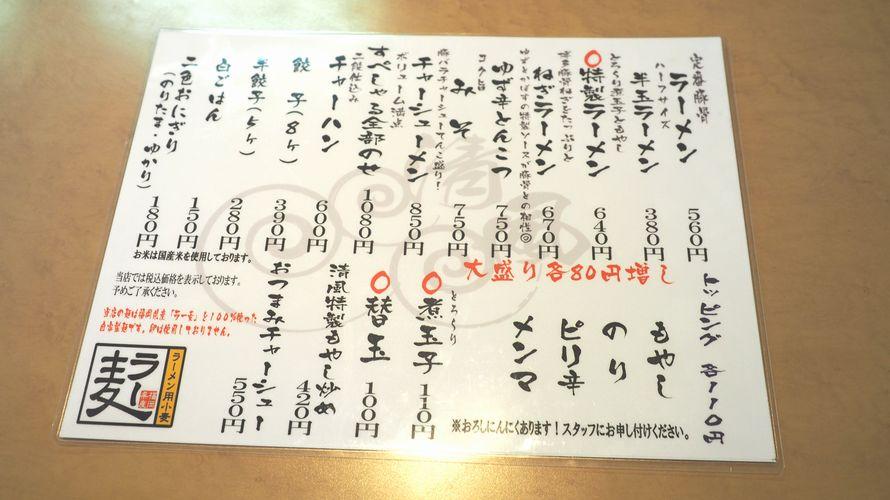 定番豚骨
ラーメン 560円
ハーフサイズ
半玉ラーメン 380円
とろ〜り煮玉子ともやし
○特製ラーメン 640円
京都豚骨ねぎどたっぷりと
ねぎラーメン 670円
ゆずとかぼすの特製ソースが豚骨との相性◎
ゆず辛とんこつ 750円
コク旨
みそ 750円
豚バラチャーシューてんこ盛り!
チャーシューメン 850円
ボリューム満点
すぺしゃる全部のせ 1080円
二段仕込み
チャーハン 600円
餃子(8ヶ) 390円
半餃子(5ヶ) 280円
白ごはん 150円
二色おにぎり
(のりたま・ゆかり) 180円
大盛り各80円増し
トッピング 各110円
もやし
のり
ピリ辛
メンマ
とろ〜り
○煮玉子 110円
○替玉 100円
清風特製もやし炒め 420円
おつまみチャーシュー 550円
※おろしにんにくあります!スタッフにお申し付けください。
お米は国産米を使用しております。
当店では税込価格を表示しております。
予めご了承ください。
当店の麺は福岡県産「ラー麦」を100%使った
自家製麺です。卵は使用しておりません。
ラーメン用小麦
ラー麦
福岡県産
清風